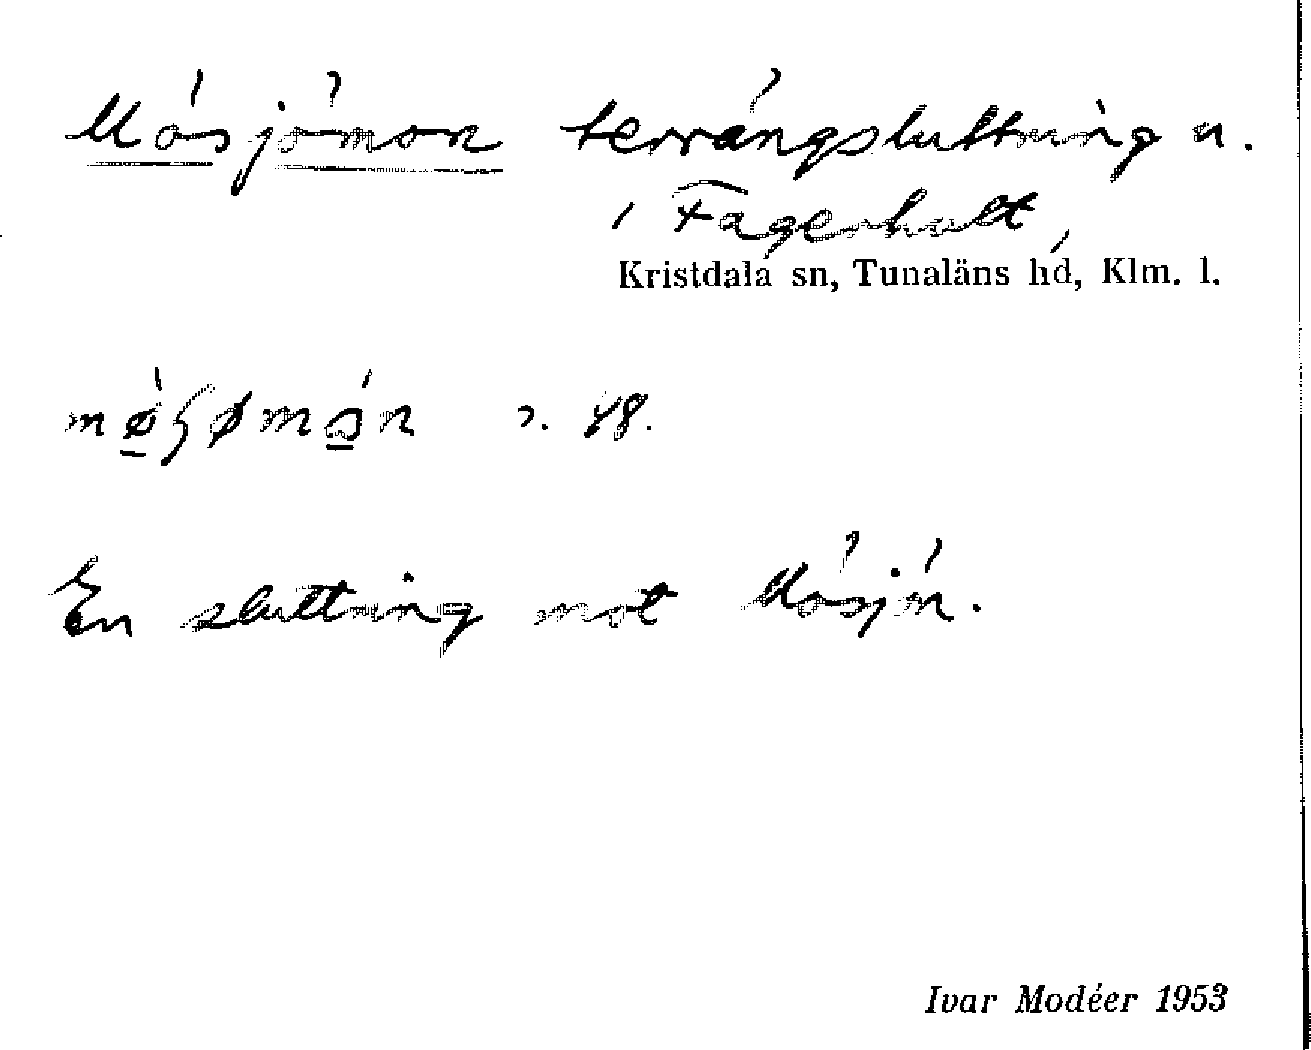 Mösjömon terrängsluttning n.
i Fagerhult
Kristdala sn, Tunaläns hd, Klm. l.
48.
En sluttning mot Mösjön.
Ivar Modéer 1953